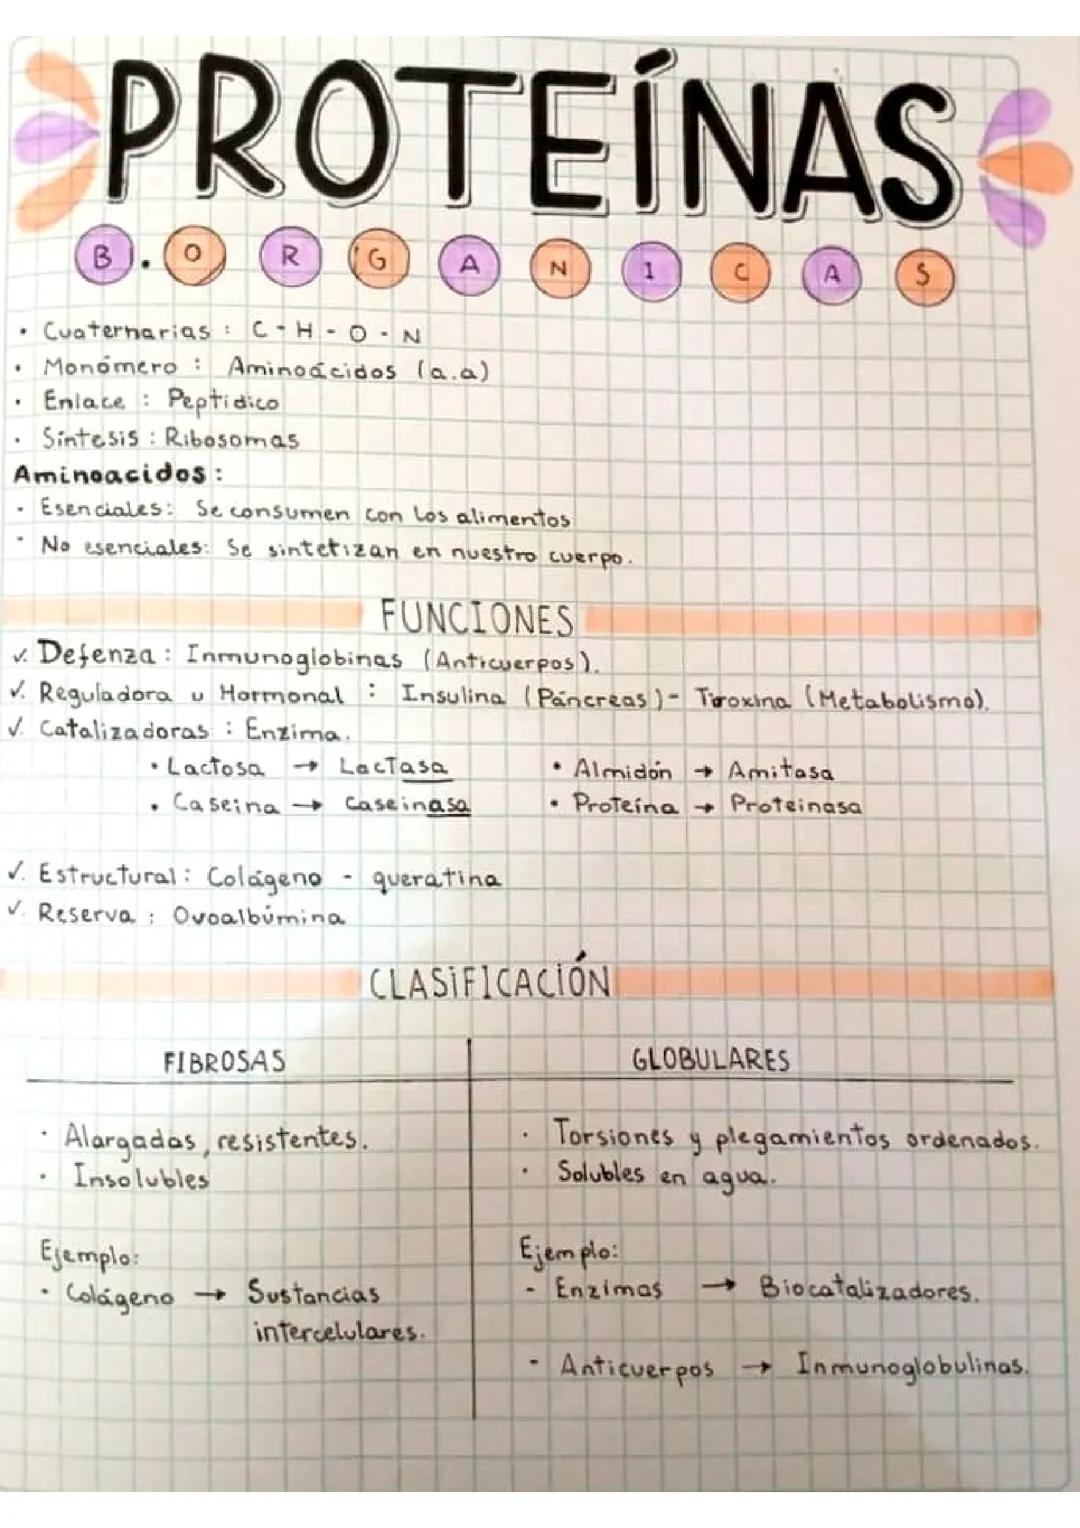 PROTEÍNAS
B. ORGANICAS
• Cuaternarias : C - H - O - N
• Monómero : Aminoácidos (a.a)
• Enlace : Peptidico
• Síntesis : Ribosomas
Aminoacidos :
• Esenciales: Se consumen con los alimentos
• No esenciales: Se sintetizan en nuestro cuerpo.
FUNCIONES
✓. Defenza : Inmunoglobinas (Anticuerpos).
✓. Reguladora u Hormonal : Insulina (Páncreas) - Tiroxina (Metabolismo).
✓. Catalizadoras : Enzima.
• Lactosa → Lactasa • Almidón → Amitasa
• Caseina → Caseinasa • Proteína → Proteinasa
✓. Estructural : Colágeno - queratina
✓. Reserva : Ovoalbúmina
CLASIFICACIÓN
FIBROSAS GLOBULARES
• Alargadas, resistentes. • Torsiones y plegamientos ordenados.
• Insolubles • Solubles en agua.
Ejemplo: Ejemplo:
• Colágeno → Sustancias - Enzimas → Biocatalizadores.
intercelulares.
- Anticuerpos → Inmunoglobulinas.